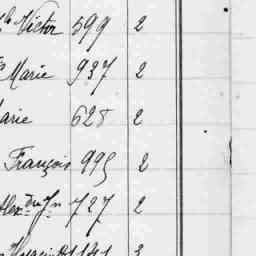 Victor 599 2
Marie 937 2
arie 628 2
François 995 2
Alex. 727 2